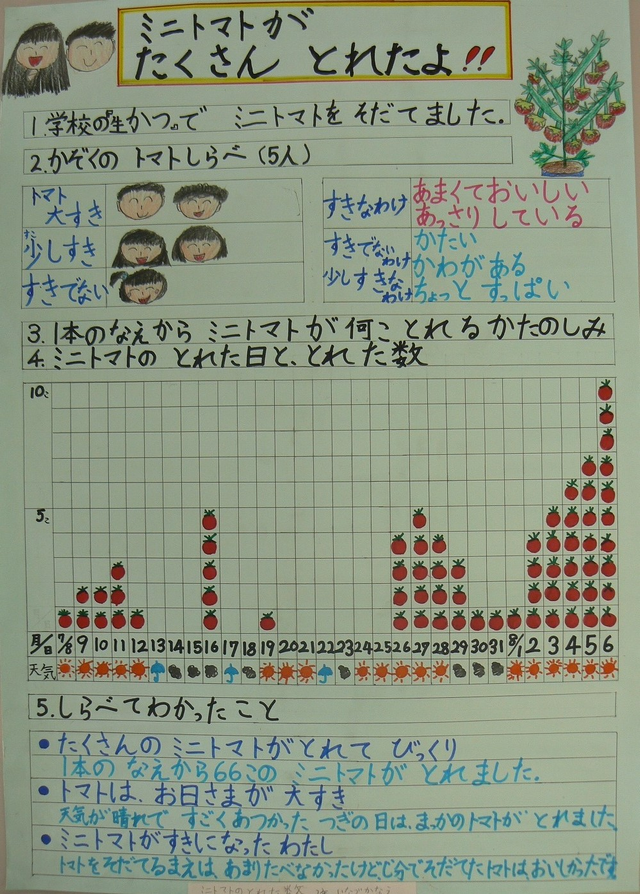 ミニトマトが
たくさん とれたよ!!
1.学校の『生かつ』で ミニトマトを そだてました。
2.かぞくの トマトしらべ (5人)
トマト
大すき
少しすき
すきでない
すきなわけ
あまくておいしい
あっさりしている
すきでない
わけ
かたい
かわがある
少しすきな
わけ
ちょっと すっぱい
3.1本のなえから ミニトマトが 何ことれるかたのしみ
4.ミニトマトの とれた日と、とれた数
10こ
5こ
月/日 7/8 9 10 11 12 13 14 15 16 17 18 19 20 21 22 23 24 25 26 27 28 29 30 31 8/1 2 3 4 5 6
天気
5.しらべてわかったこと
●たくさんの ミニトマトがとれて びっくり
1本の なえから66この ミニトマトが とれました。
●トマトは、お日さまが 大すき
天気が晴れで すごくあつかった つぎの日は、まっかのトマトが とれました
●ミニトマトがすきになった わたし
トマトをそだてるまえは、あまりたべなかったけどじ分でそだてたトマトは、おいしかったです